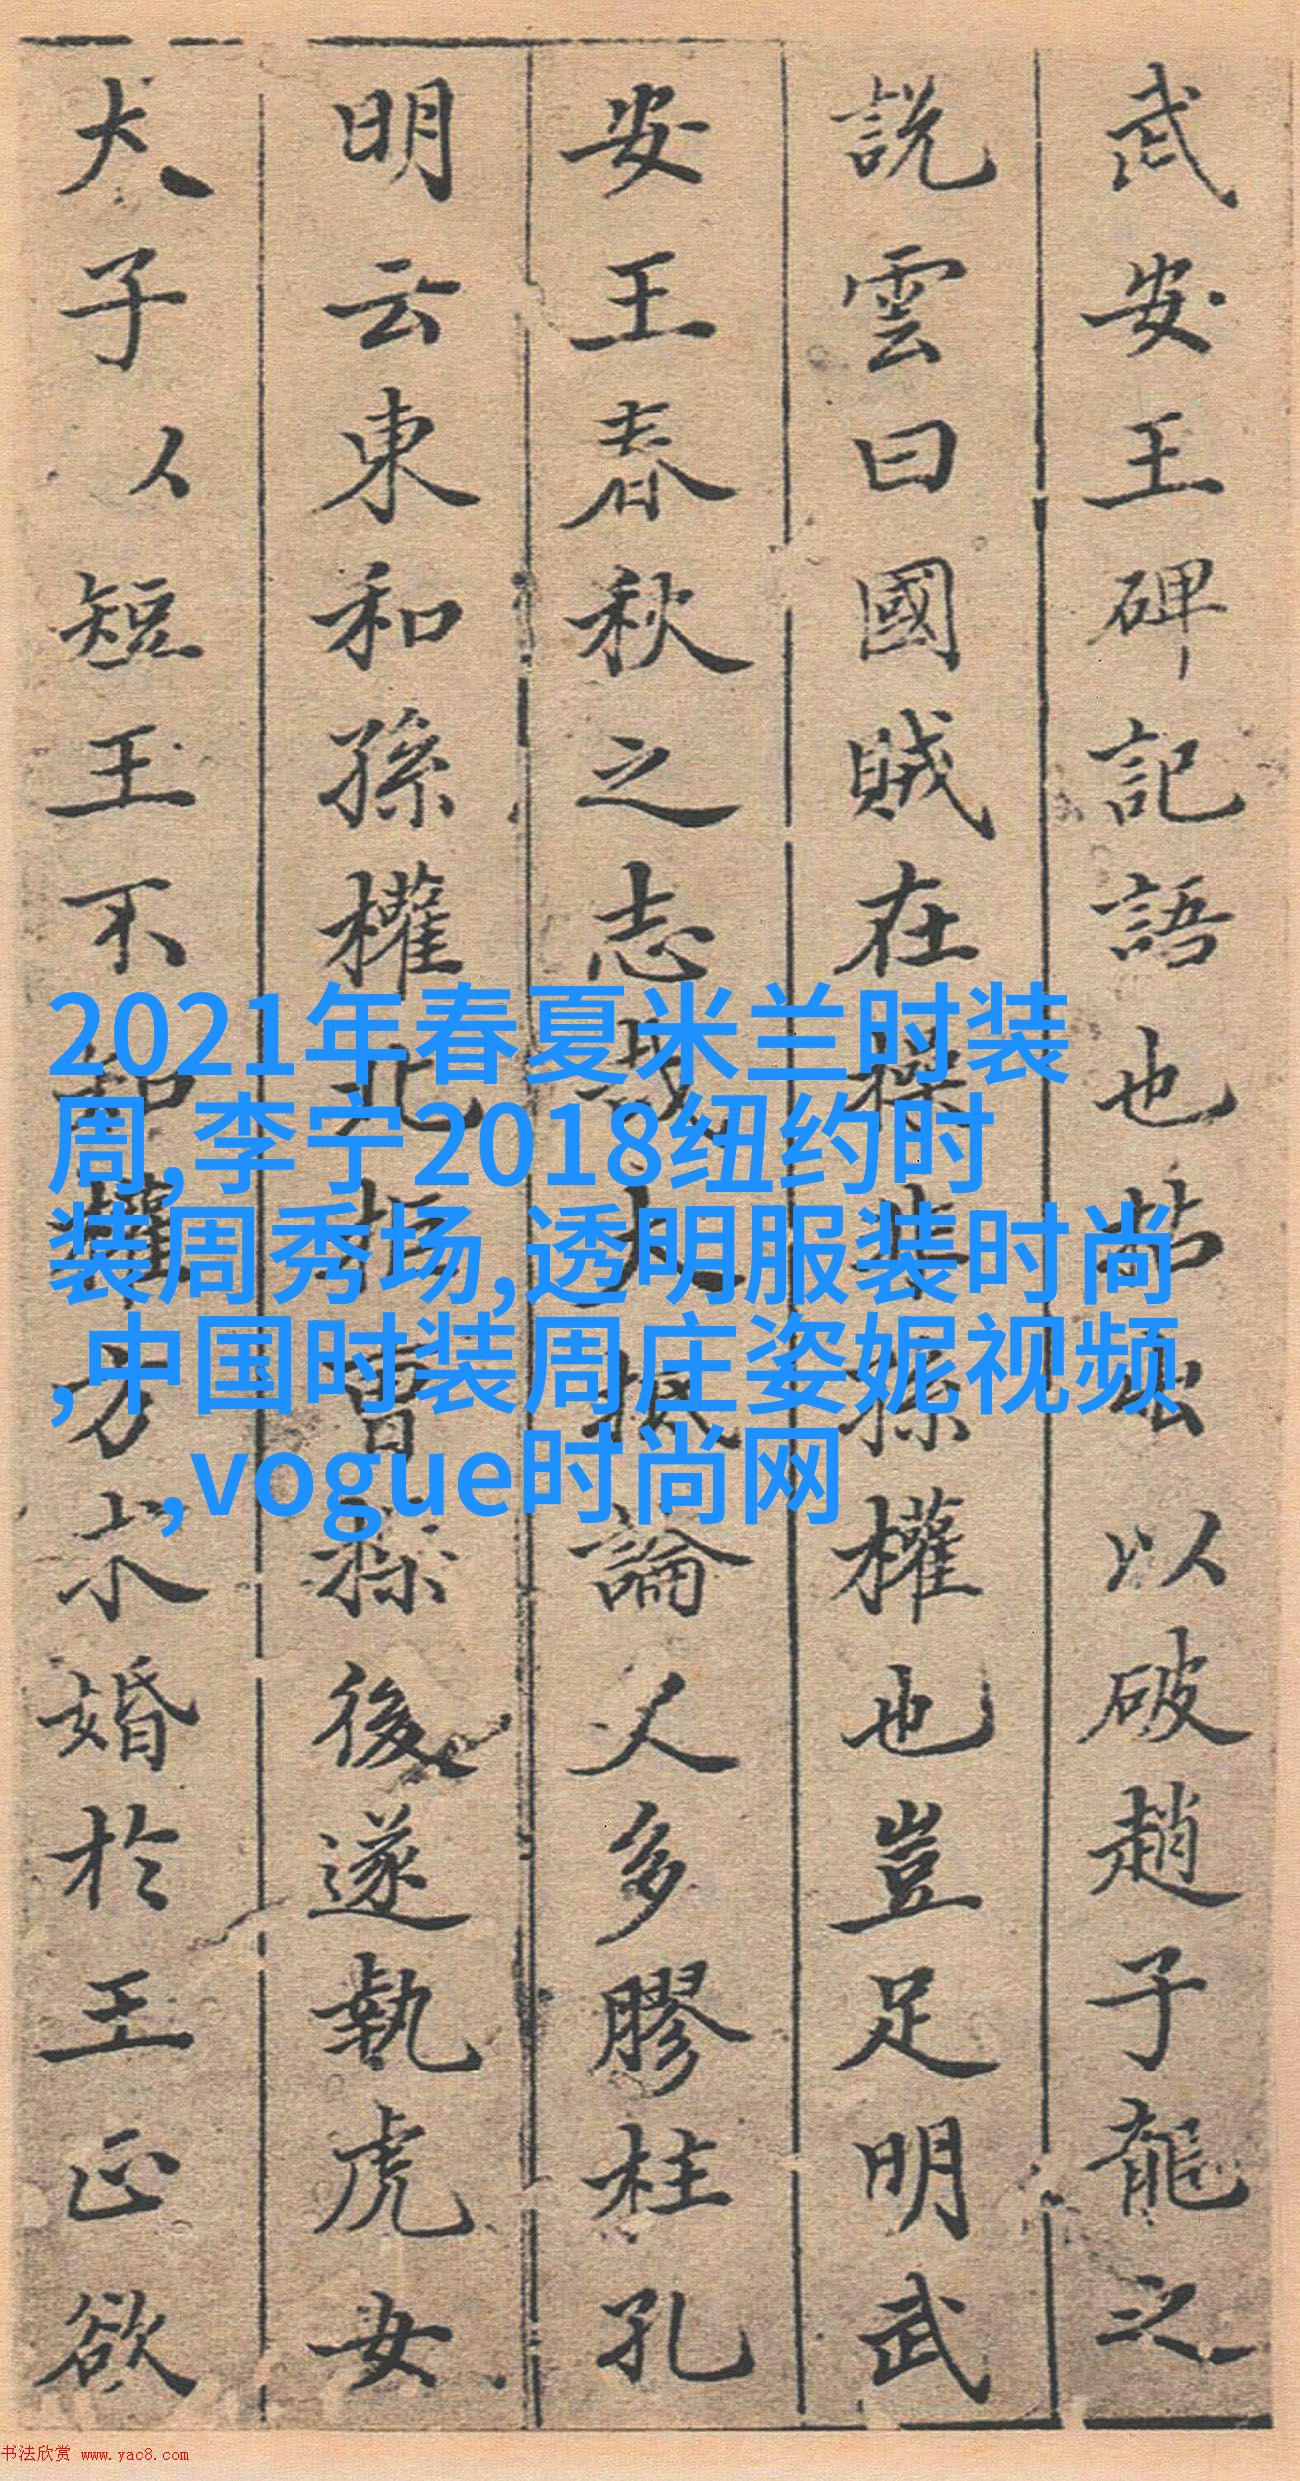 武安王碑記語也昔出以破趙子龍之
說雲曰國賊在操非孫權也豈足明武
安王春秋之志哉大抵論人多膠柱孔
明云東和孫權北拒曹操後遂執虎女
犬子以短王不知權方求婚於王正欲
2021年春夏米兰时装
周,李宁2018纽约时
装周秀场,透明服装时尚
,中国时装周庄姿妮视频
,vogue时尚网
书法欣赏 www.yac8.com